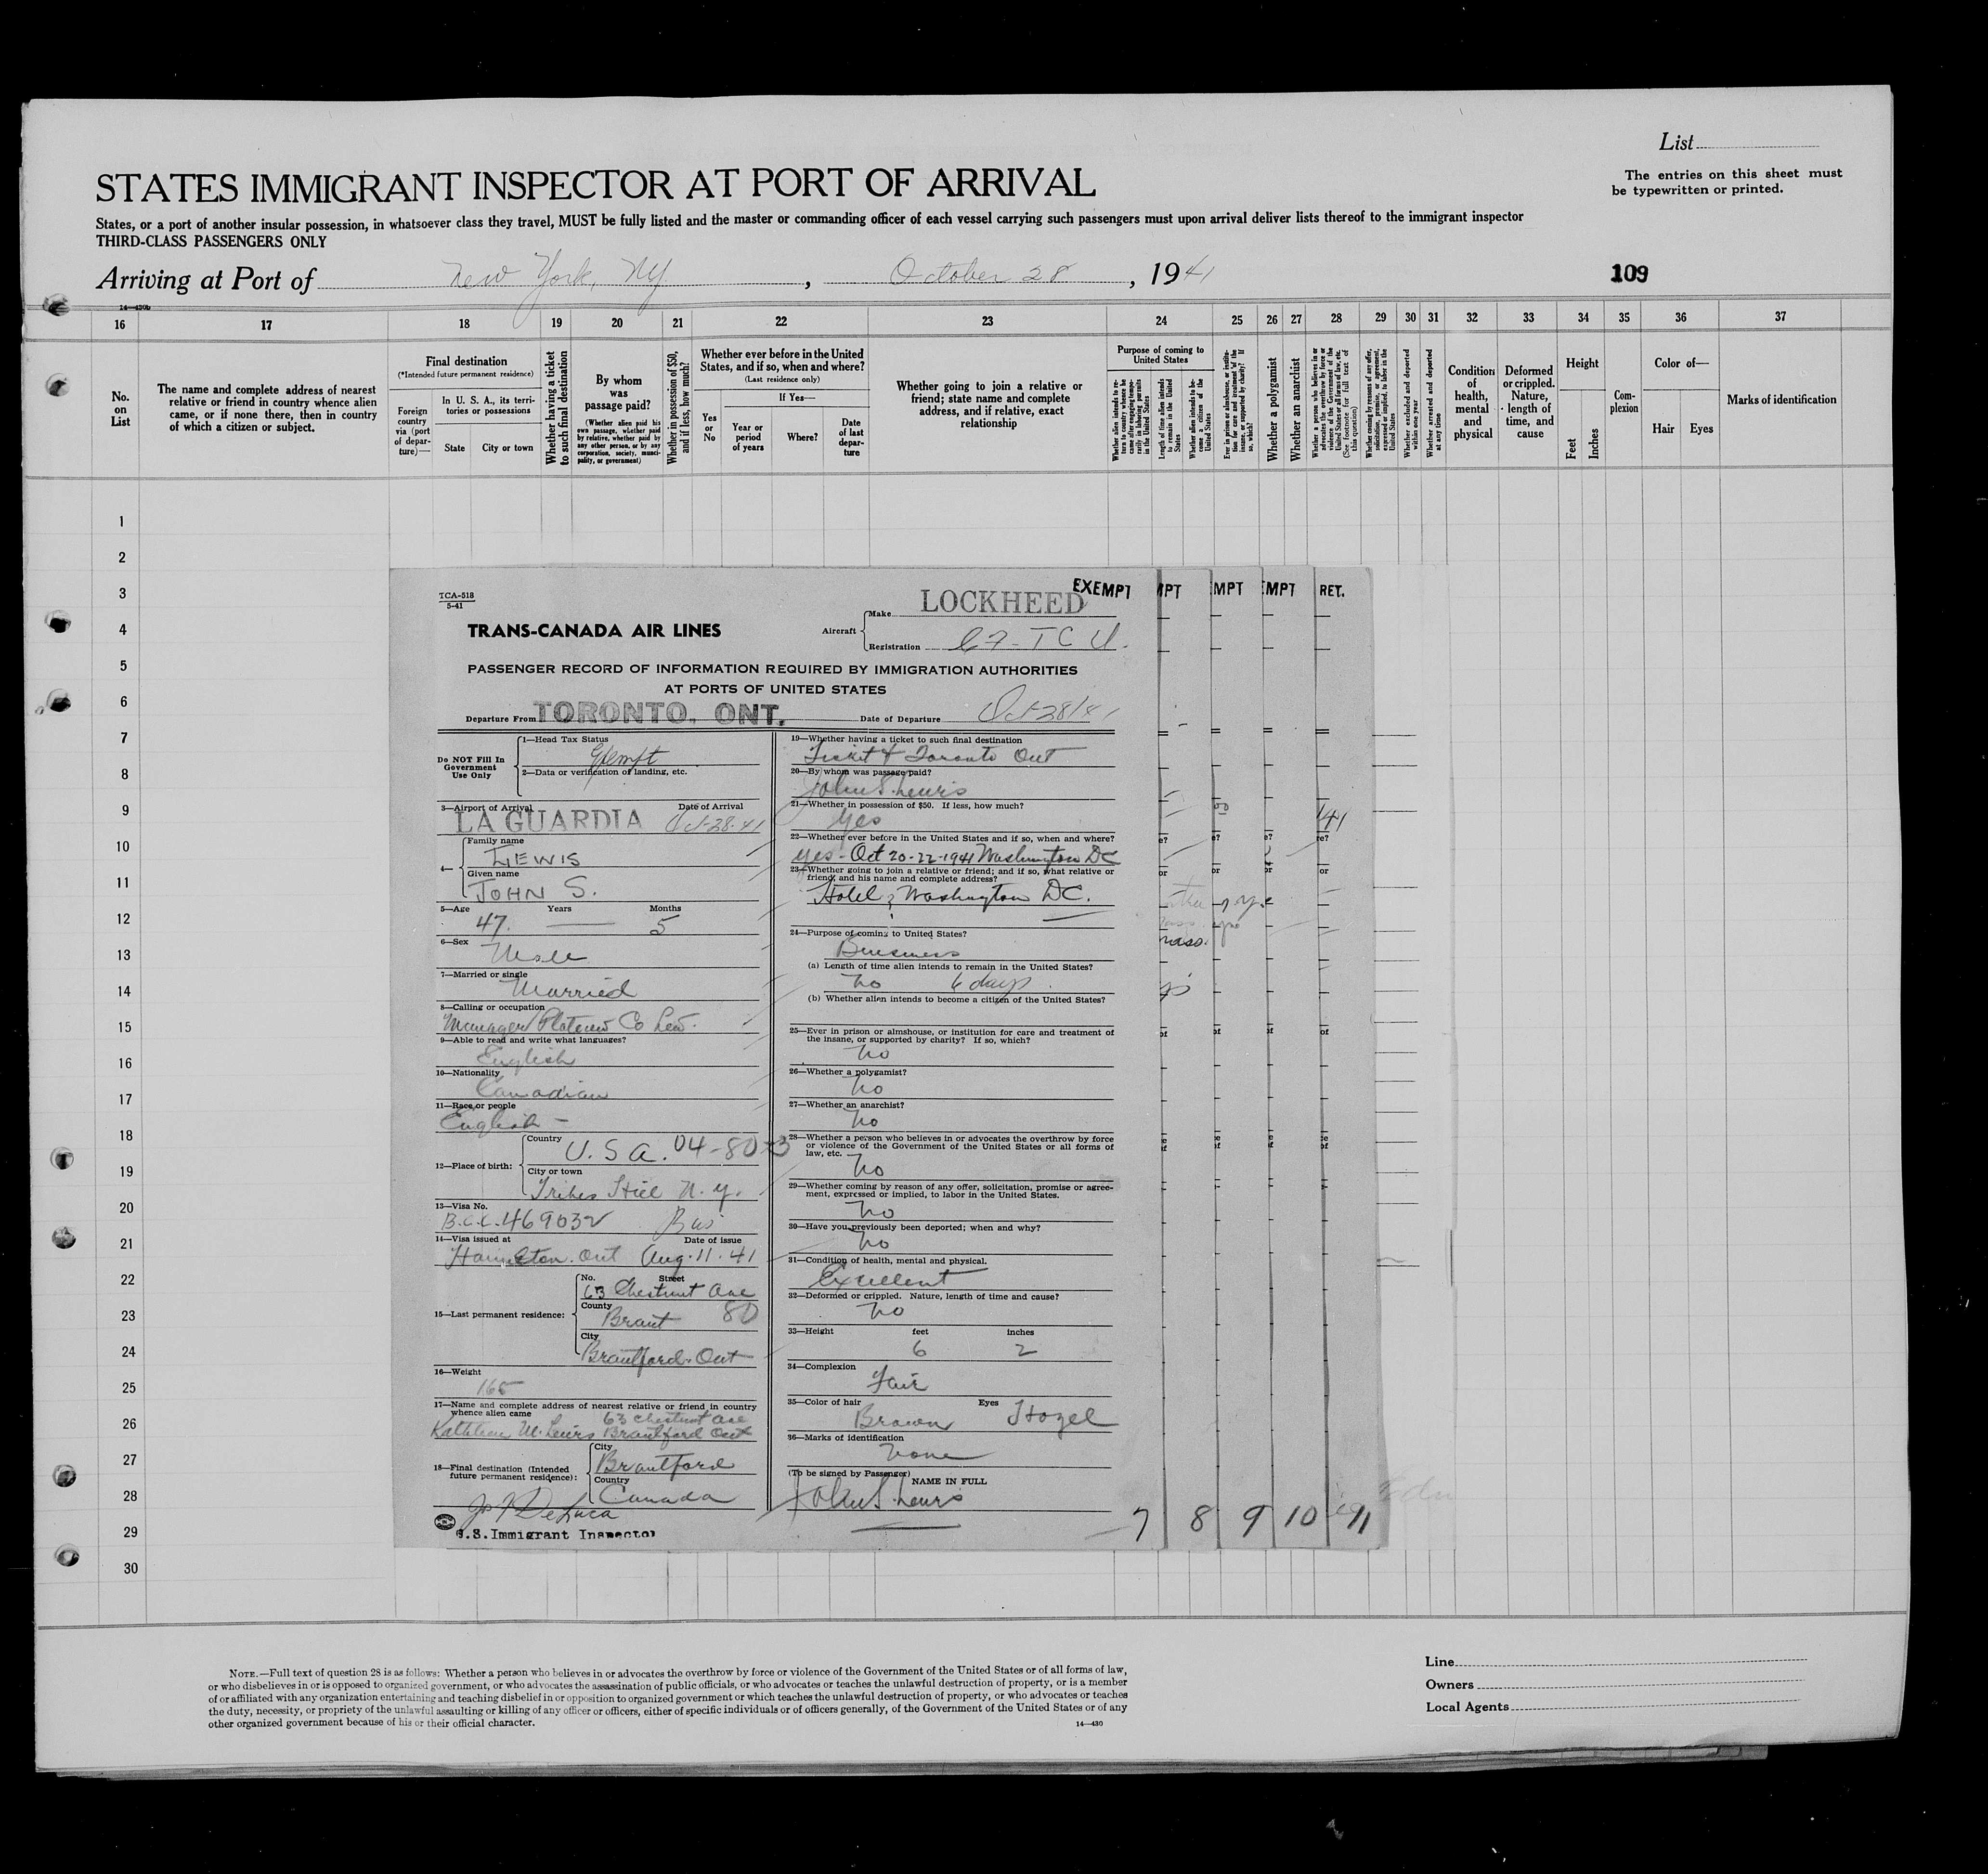 List
STATES IMMIGRANT INSPECTOR AT PORT OF ARRIVAL
The entries on this sheet must
be typewritten or printed.
States, or a port of another insular possession, in whatsoever class they travel, MUST be fully listed and the master or commanding officer of each vessel carrying such passengers must upon arrival deliver lists thereof to the immigrant inspector
THIRD-CLASS PASSENGERS ONLY
Arriving at Port of New York, NY, October 28, 1941
109
14—430b
16 17 18 19 20 21 22 23 24 25 26 27 28 29 30 31 32 33 34 35 36 37
No. on List
The name and complete address of nearest relative or friend in country whence alien came, or if none there, then in country of which a citizen or subject.
Final destination
(*Intended future permanent residence)
Foreign country via (port of departure)—
In U. S. A., its territories or possessions
State
City or town
Whether having a ticket to such final destination
By whom was passage paid?
(Whether alien paid his own passage, whether paid by relative, whether paid by any other person, or by any corporation, society, municipality, or government)
Whether in possession of $50, and if less, how much?
Whether ever before in the United States, and if so, when and where?
(Last residence only)
Yes or No
If Yes—
Year or period of years
Where?
Date of last departure
Whether going to join a relative or friend; state name and complete address, and if relative, exact relationship
Purpose of coming to United States
Whether alien intends to return to country whence he came after engaging temporarily in laboring pursuits in the United States
Length of time alien intends to remain in the United States
Whether alien intends to become a citizen of the United States
Ever in prison or almshouse, or institution for care and treatment of the insane, or supported by charity? If so, which?
Whether a polygamist
Whether an anarchist
Whether a person who believes in or advocates the overthrow by force or violence of the Government of the United States or all forms of law, etc. (See footnote for full text of this question)
Whether coming by reasons of any offer, solicitation, promise, or agreement, expressed or implied, to labor in the United States
Whether excluded and deported within one year
Whether arrested and deported at any time
Condition of health, mental and physical
Deformed or crippled. Nature, length of time, and cause
Height
Feet
Inches
Complexion
Color of—
Hair
Eyes
Marks of identification
1
2
3
4
5
6
7
8
9
10
11
12
13
14
15
16
17
18
19
20
21
22
23
24
25
26
27
28
29
30
TCA-518
5-41
TRANS-CANADA AIR LINES
Aircraft
Make LOCKHEED
EXEMPT
MPT MPT EMPT RET.
Registration C7-TCU.
PASSENGER RECORD OF INFORMATION REQUIRED BY IMMIGRATION AUTHORITIES
AT PORTS OF UNITED STATES
Departure From TORONTO, ONT. Date of Departure Oct-28/41
Do NOT Fill In
Government
Use Only
1—Head Tax Status
Exempt
2—Data or verification of landing, etc.
3—Airport of Arrival Date of Arrival
LA GUARDIA Oct-28-41
4—
Family name
LEWIS
Given name
JOHN S.
5—Age Years Months
47. 5
6—Sex
Male
7—Married or single
Married
8—Calling or occupation
Manager
9—Able to read and write what languages?
English
10—Nationality
Canadian
11—Race or people
English —
12—Place of birth:
Country
U.S.A. 04-80
City or town
Tribes Hill N.Y.
13—Visa No.
B.C.C. 469032 Bus
14—Visa issued at Date of issue
Hamilton. Ont Aug. 11. 41
15—Last permanent residence:
No. Street
63 Chestnut Ave
County
Brant 80
City
Brantford. Ont
16—Weight
165
17—Name and complete address of nearest relative or friend in country
whence alien came 63 Chestnut Ave
Kathleen M. Lewis Brantford Ont
18—Final destination (Intended
future permanent residence):
City
Brantford
Country
Canada
U.S. Immigrant Inspector
19—Whether having a ticket to such final destination
Ticket Toronto Ont
20—By whom was passage paid?
John S. Lewis
21—Whether in possession of $50. If less, how much?
Yes
22—Whether ever before in the United States and if so, when and where?
yes - Oct 20-22-1941 Washington DC
23—Whether going to join a relative or friend; and if so, what relative or
friend, and his name and complete address?
Hotel, Washington DC.
24—Purpose of coming to United States?
Business
(a) Length of time alien intends to remain in the United States?
no 6 days
(b) Whether alien intends to become a citizen of the United States?
25—Ever in prison or almshouse, or institution for care and treatment of
the insane, or supported by charity? If so, which?
no
26—Whether a polygamist?
no
27—Whether an anarchist?
no
28—Whether a person who believes in or advocates the overthrow by force
or violence of the Government of the United States or all forms of
law, etc.
no
29—Whether coming by reason of any offer, solicitation, promise or agree-
ment, expressed or implied, to labor in the United States.
no
30—Have you previously been deported; when and why?
no
31—Condition of health, mental and physical.
Excellent
32—Deformed or crippled. Nature, length of time and cause?
no
33—Height feet inches
6 2
34—Complexion
Fair
35—Color of hair Eyes
Brown Hazel
36—Marks of identification
none
(To be signed by Passenger)
NAME IN FULL
John S. Lewis
7 8 9 10 11
NOTE.—Full text of question 28 is as follows: Whether a person who believes in or advocates the overthrow by force or violence of the Government of the United States or of all forms of law,
or who disbelieves in or is opposed to organized government, or who advocates the assassination of public officials, or who advocates or teaches the unlawful destruction of property, or is a member
of or affiliated with any organization entertaining and teaching disbelief in or opposition to organized government or which teaches the unlawful destruction of property, or who advocates or teaches
the duty, necessity, or propriety of the unlawful assaulting or killing of any officer or officers, either of specific individuals or of officers generally, of the Government of the United States or of any
other organized government because of his or their official character.
14—430
Line
Owners
Local Agents